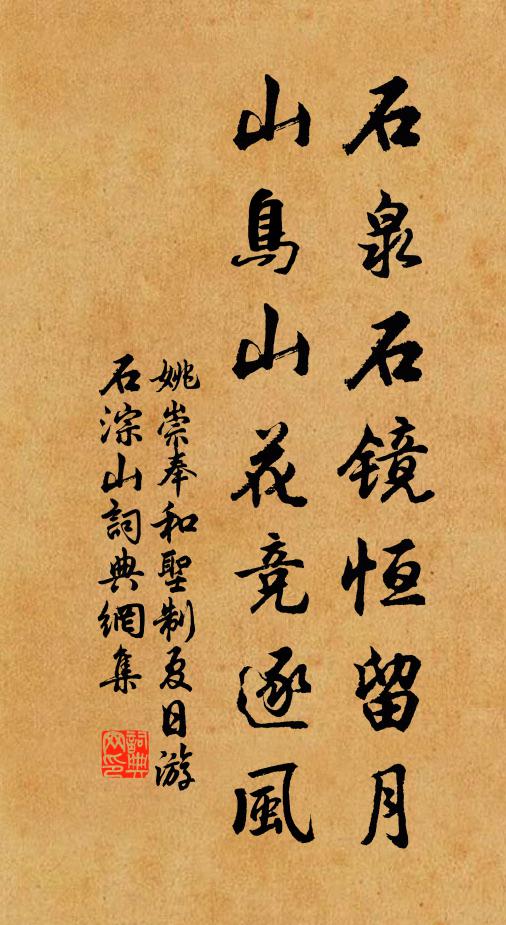 石泉石镜恒留月
山鳥山花竞逐風
姚崇奉和聖制夏日游
石淙山詞典網集
詞典网印